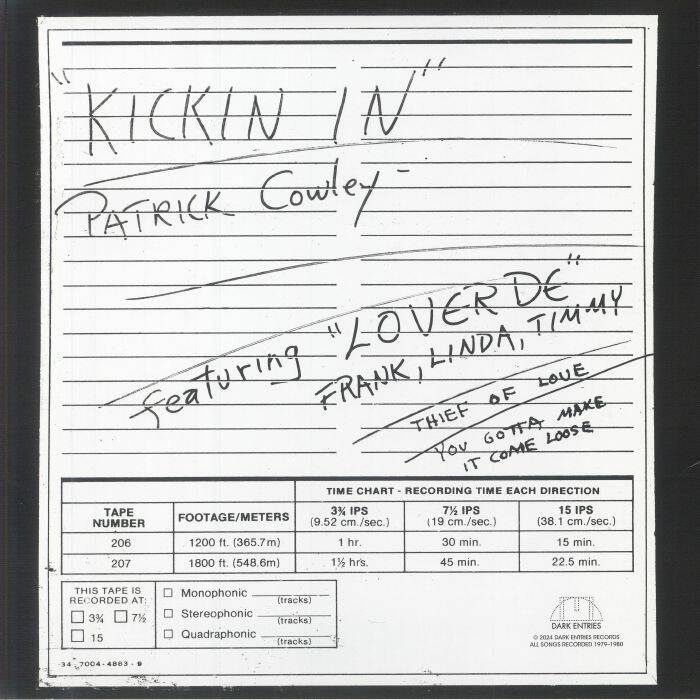 "KICKIN IN"
PATRICK Cowley -
featuring "LOVERDE"
FRANK, LINDA, TIMMY
THIEF OF LOVE
YOU GOTTA MAKE
IT COME LOOSE
TIME CHART - RECORDING TIME EACH DIRECTION
TAPE NUMBER FOOTAGE/METERS 3¾ IPS (9.52 cm./sec.) 7½ IPS (19 cm./sec.) 15 IPS (38.1 cm./sec.)
206 1200 ft. (365.7m) 1 hr. 30 min. 15 min.
207 1800 ft. (548.6m) 1½ hrs. 45 min. 22.5 min.
THIS TAPE IS
RECORDED AT:
3¾ 7½
15
Monophonic (tracks)
Stereophonic (tracks)
Quadraphonic (tracks)
34-7004-4863-9
DARK ENTRIES
© 2024 DARK ENTRIES RECORDS
ALL SONGS RECORDED 1979-1980